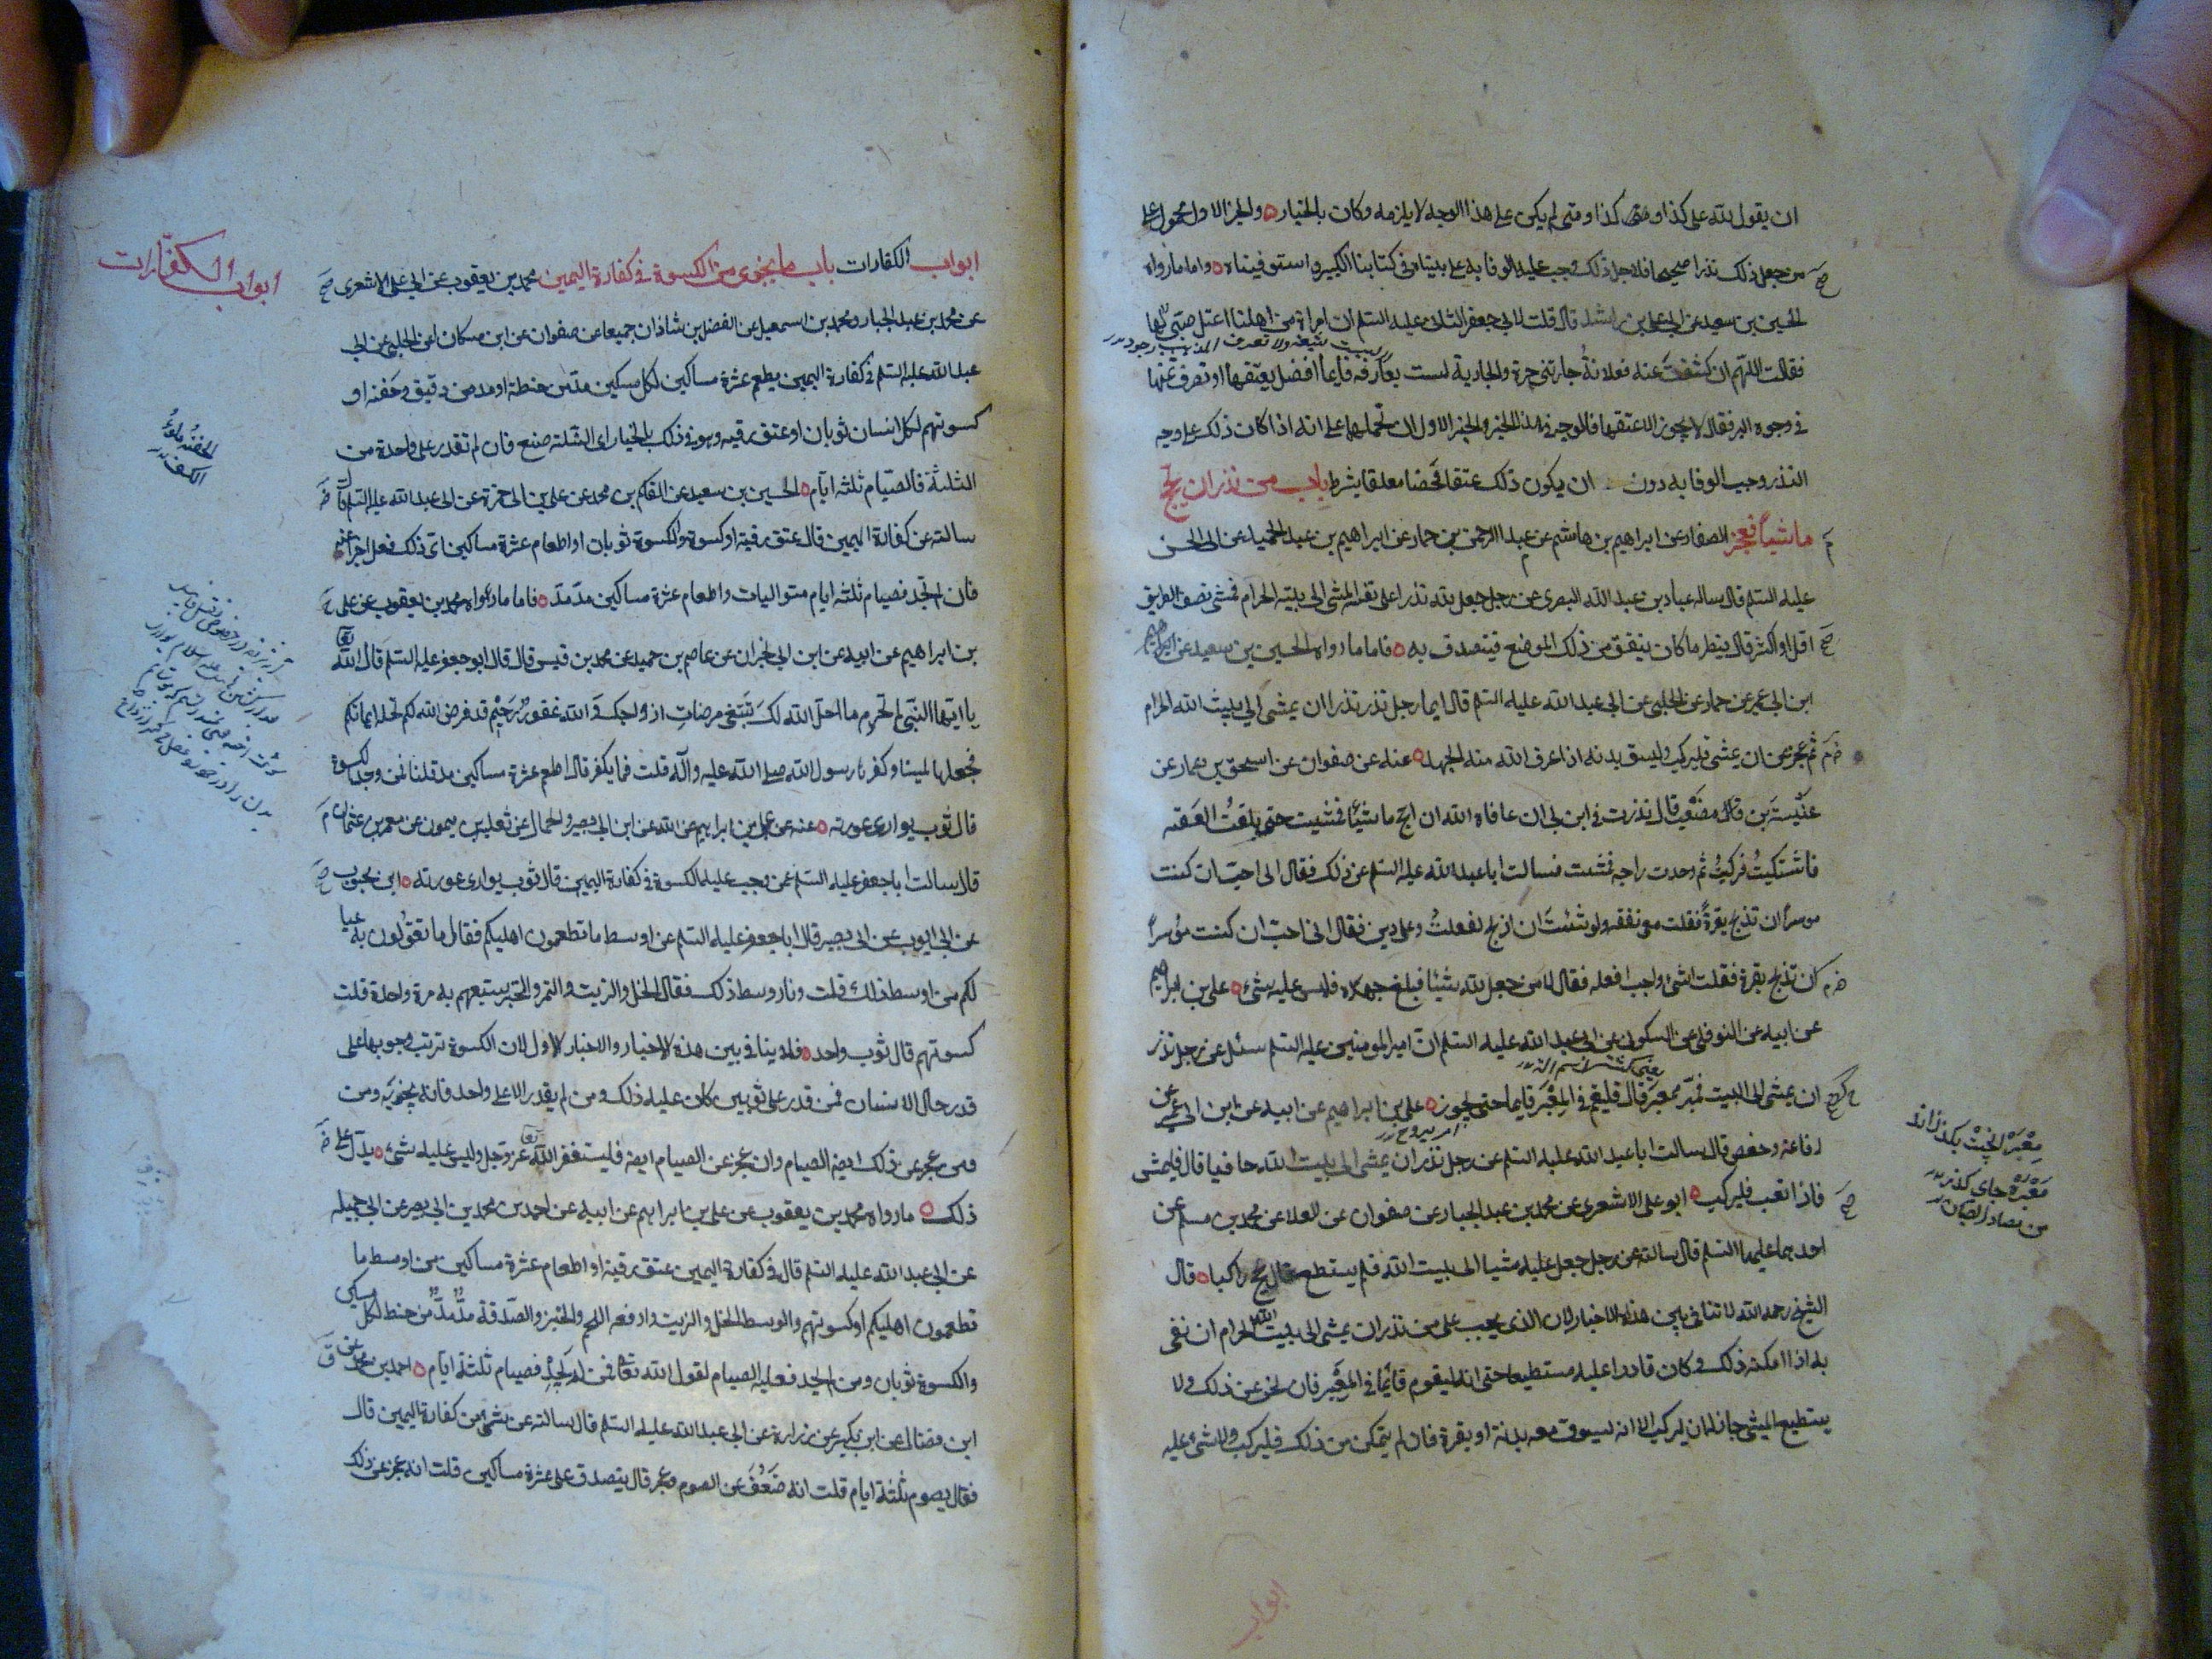 ان يقول لله على كذا وكذا ومتى لم يكن على هذا الوجه لا يلزمه وكان بالخيار والخبر الاول محمول على
من جعل ذلك نذرا صحيحا فلاجل ذلك وجب عليه الوفا به على ما بيناه في كتابنا الكبير واستوفيناه واما ما رواه
الحسين بن سعيد عن ابي علي بن راشد قال قلت لابي جعفر الثاني عليه السلم ان امراة من اهلنا اعتل صبي لها
ليست شيعة ولا تعرف المذهب
فقالت اللهم ان كشفت عنه ففلانة جارتي حرة والجارية ليست بعارفة فايما افضل يعتقها او تصرف ثمنها
في وجوه البر فقال لا يجوز الا عتقها فالوجه في هذا الخبر والخبر الاول ان نحملهما على انه اذا كان ذلك على وجه
النذر وجب الوفا به دون ان يكون ذلك عتقا محضا معلقا بشرط باب من نذر ان يحج
ماشيا فعجز الصفار عن ابراهيم بن هاشم عن عبد الرحمن بن حماد عن ابراهيم بن عبد الحميد عن ابي الحسن
عليه السلم قال ساله عباد بن عبد الله البصري عن رجل جعل لله نذرا على نفسه المشي الى بيته الحرام فمشى نصف الطريق
اقل او اكثر قال ينظر ما كان ينفق من ذلك الموضع فيتصدق به فاما ما رواه الحسين بن سعيد عن
ابن ابي عمير عن حماد عن الحلبي عن ابي عبد الله عليه السلم قال ايما رجل نذر نذرا ان يمشي الى بيت الله الحرام
ثم عجز عن ان يمشي فليركب وليسق بدنه اذا عرف الله منه الجهد عنه عن صفوان عن اسحق بن عمار عن
عنبسة بن مصعب قال نذرت في ابن لي ان عافاه الله ان احج ماشيا فمشيت حتى بلغت العقبه
فاشتكيت فركبت ثم وجدت راحه فمشيت فسالت ابا عبد الله عليه السلم عن ذلك فقال اني احب ان كنت
موسرا ان تذبح بقرة فقلت معي نفقه ولو شئت ان اذبح لفعلت وعلي دين فقال اني احب ان كنت موسرا
ان تذبح بقرة فقلت اشئ واجب افعله فقال لا من جعل لله شيئا فبلغ جهده فليس عليه شئ علي بن ابراهيم
عن ابيه عن النوفلي عن السكوني عن ابي عبد الله عليه السلم ان امير المومنين عليه السلم سئل عن رجل نذر
ان يمشي الى البيت فمر بمعبر قال فليقم في المعبر قايما حتى يجوز علي بن ابراهيم عن ابيه عن ابن ابي عمير عن
رفاعة وحفص قال سالت ابا عبد الله عليه السلم عن رجل نذر ان يمشي الى بيت الله حافيا قال فليمش
فاذا تعب فليركب ابو علي الاشعري عن محمد بن عبد الجبار عن صفوان عن العلا عن محمد بن مسلم عن
احدهما عليهما السلم قال سالته عن رجل جعل عليه مشيا الى بيت الله فلم يستطع قال يحج راكبا قال
الشيخ رحمه الله لا تنافي بين هذه الاخبار لان الذي يجب على من نذر ان يمشي الى بيت الله الحرام ان يفي
به اذا امكنه ذلك وكان قادرا عليه مستطيعا حتى انه ليقوم قائما في المعبر فان عجز عن ذلك ولا
يستطيع المشي جاز له ان يركب الا انه ليسوق معه بدنة او بقرة فان لم يتمكن من ذلك فليركب ولا شئ عليه
معبر بالخبث بكذراند
معبرة جاى كذر
ابواب
ابواب الكفارات
ابواب الكفارات باب ما يجزي من الكسوة في كفارة اليمين محمد بن يعقوب عن ابي علي الاشعري
عن محمد بن عبد الجبار ومحمد بن اسمعيل عن الفضل بن شاذان جميعا عن صفوان عن ابن مسكان عن الحلبي عن ابي
عبد الله عليه السلم في كفارة اليمين يطعم عشرة مساكين لكل مسكين مد من حنطة او مد من دقيق وحفنه او
كسوتهم لكل انسان ثوبان او عتق رقبه وهو في ذلك بالخيار اى الثلثة صنع فان لم تقدر على واحدة من
الثلثة فالصيام ثلثه ايام الحسين بن سعيد عن القسم بن محمد عن علي بن ابي حمزة عن ابي عبد الله عليه السلم قال
سالته عن كفارة اليمين قال عتق رقبة او كسوة والكسوة ثوبان او اطعام عشرة مساكين اى ذلك فعل اجزأ عنه
فان لم يجد فصيام ثلثه ايام متواليات واطعام عشرة مساكين مد مد فاما ما رواه محمد بن يعقوب عن علي
بن ابراهيم عن ابيه عن ابن ابي نجران عن عاصم بن حميد عن محمد بن قيس قال قال ابو جعفر عليه السلم قال الله
يا ايها النبي لم تحرم ما احل الله لك تبتغي مرضات ازواجك والله غفور رحيم قد فرض الله لكم تحلة ايمانكم
فجعلها يمينا وكفرها رسول الله صلى الله عليه وآله قلت فما يكفر قال اطعم عشرة مساكين مد قلنا فمن وجد الكسوة
قال ثوب يوارى عورته عنه عن علي بن ابراهيم عن ابيه عن ابن ابي نصر والحجال عن ثعلبه بن ميمون عن معمر بن عثمان
قال سالت ابا جعفر عليه السلم عمن وجب عليه الكسوة في كفارة اليمين قال ثوب يوارى عورته ابن محبوب
عن ابي ايوب عن ابي بصير قال ابا جعفر عليه السلم عن اوسط ما تطعمون اهليكم فقال ما تقولون به عيا
لكم من اوسط ذلك قلت وما اوسط ذلك فقال الخل والزيت والتمر والخبز يشبعهم به مرة واحدة قلت
كسوتهم قال ثوب واحد فلا ينافي بين هذه الاخبار والاخبار الاول لان الكسوة ترتب وجوبها على
قدر حال الانسان فمن قدر على ثوبين كان عليه ذلك ومن لم يقدر الا على واحد فانه يجزيه ومن
عجز عن ذلك ايضا الصيام وان عجز عن الصيام ايضا فليستغفر الله عز وجل وليس عليه شئ يدل على
ذلك ما رواه محمد بن يعقوب عن علي بن ابراهيم عن ابيه عن احمد بن محمد بن ابي نصر عن ابي جميله
عن ابي عبد الله عليه السلم قال في كفارة اليمين عتق رقبة او اطعام عشرة مساكين من اوسط ما
تطعمون اهليكم او كسوتهم والوسط الخل والزيت وارفعه اللحم والخبز والصدقة مد مد من حنطه لكل مسكين
والكسوة ثوبان ومن لم يجد فعليه الصيام لقول الله تعالى فمن لم يجد فصيام ثلثة ايام احمد بن محمد عن
ابن فضال عن ابن بكير عن زرارة عن ابي عبد الله عليه السلم قال سالته عن شئ من كفارة اليمين قال
فقال يصوم ثلثة ايام قلت انه ضعف عن الصوم وعجز قال يتصدق على عشرة مساكين قلت انه عجز عن ذلك
الحفنة ملؤ
الكف